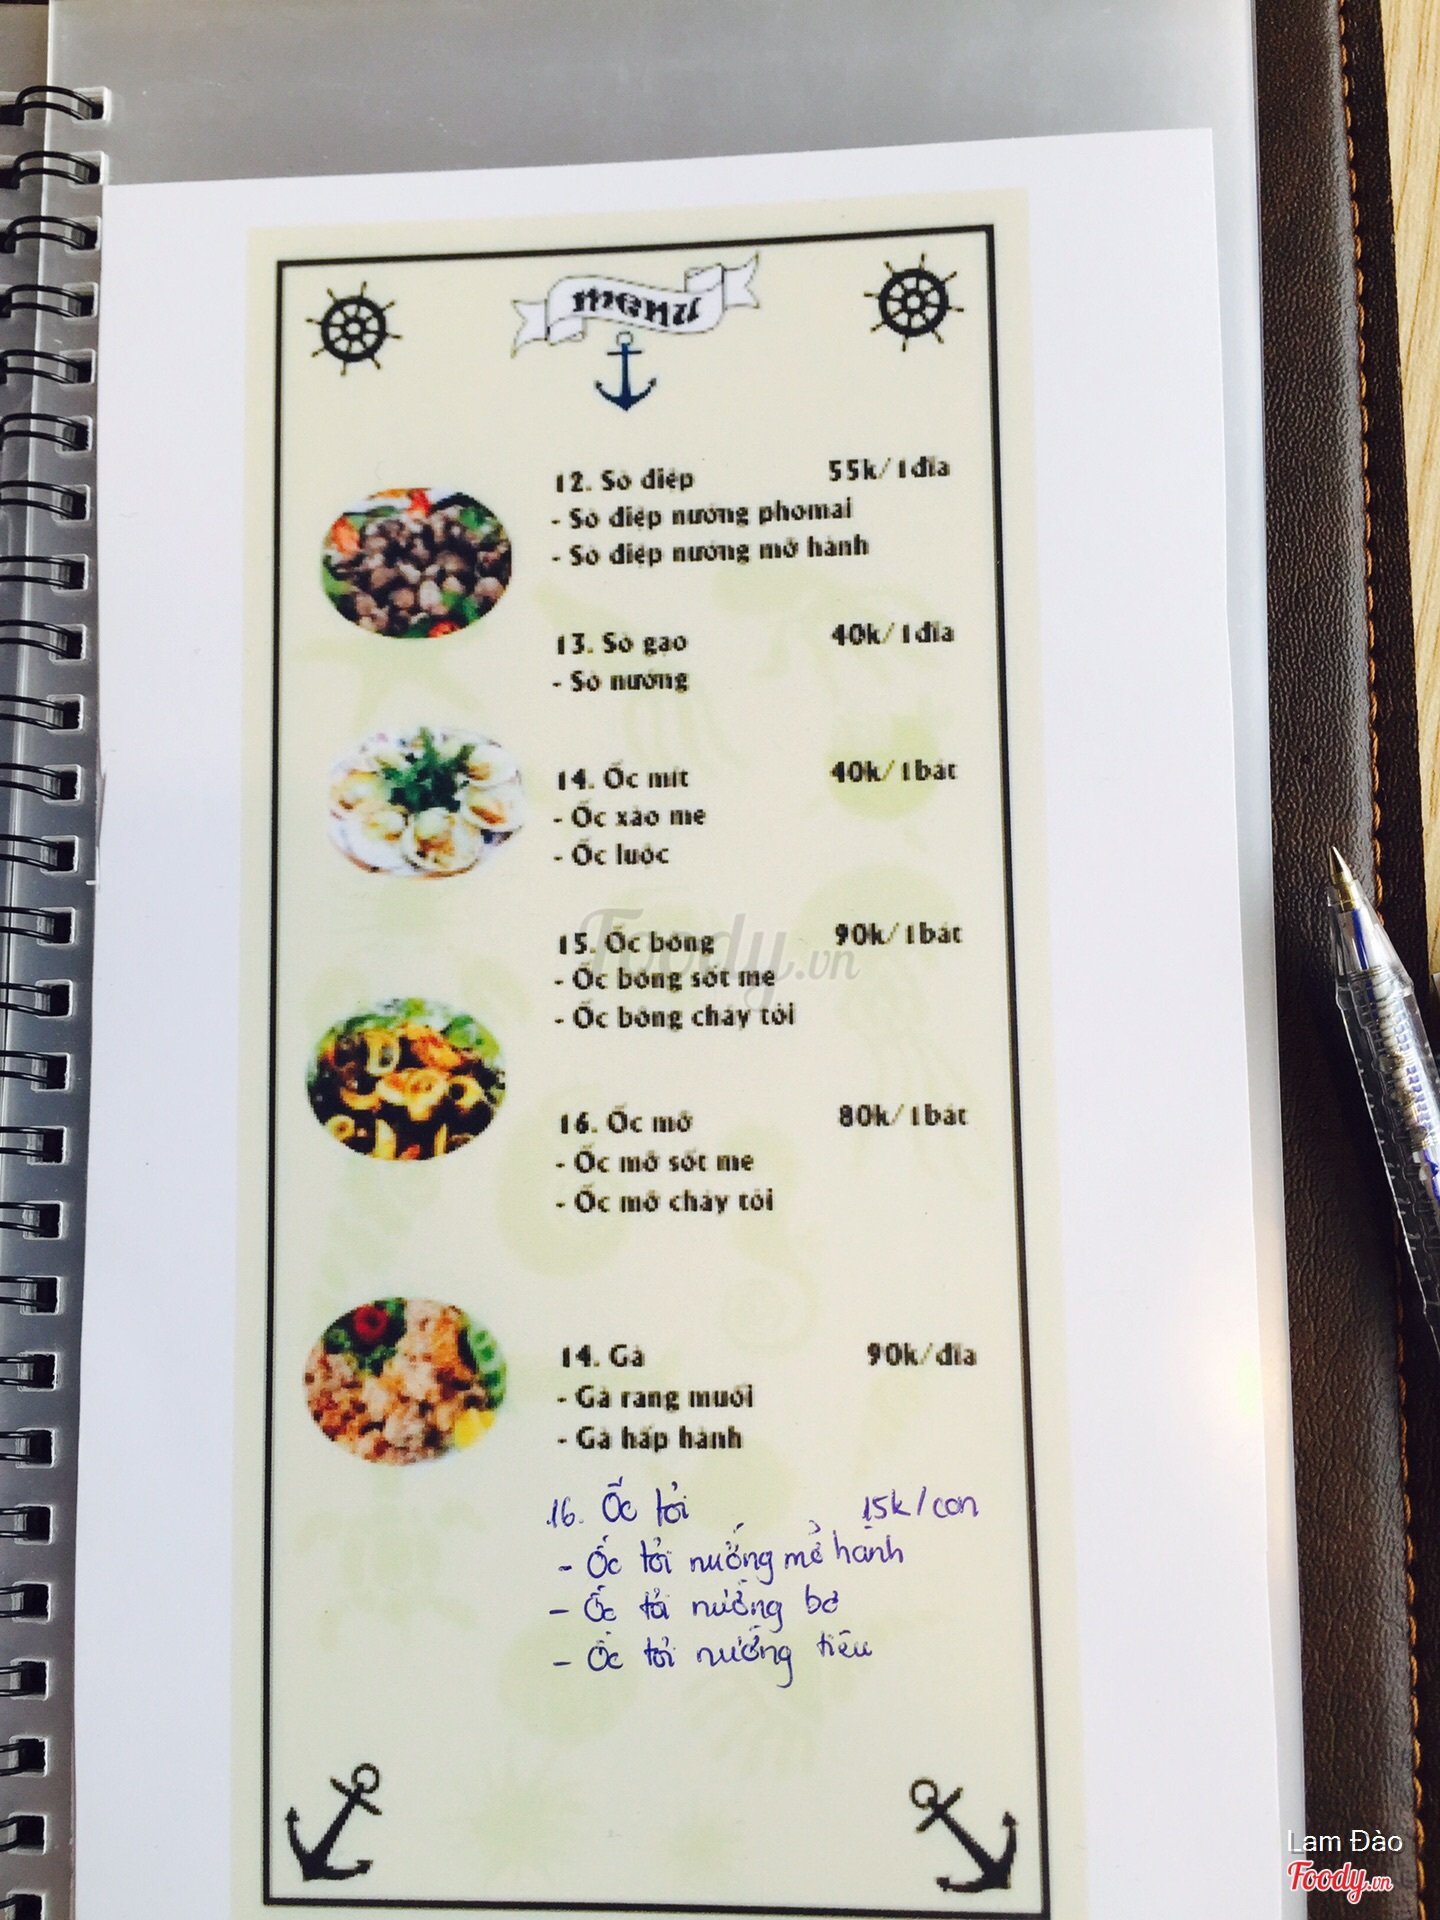 menu
12. Sò điệp 55k/1đĩa
- Sò điệp nướng phomai
- Sò điệp nướng mỡ hành
13. Sò gạo 40k/1đĩa
- Sò nướng
14. Ốc mít 40k/1bát
- Ốc xào me
- Ốc luộc
15. Ốc bông 90k/1bát
- Ốc bông sốt me
- Ốc bông cháy tỏi
16. Ốc mỡ 80k/1bát
- Ốc mỡ sốt me
- Ốc mỡ cháy tỏi
14. Gà 90k/đĩa
- Gà rang muối
- Gà hấp hành
16. Ốc tỏi 15k/con
- Ốc tỏi nướng mỡ hành
- Ốc tỏi nướng bơ
- Ốc tỏi nướng tiêu
Foody.vn
Lam Đào
Foody.vn